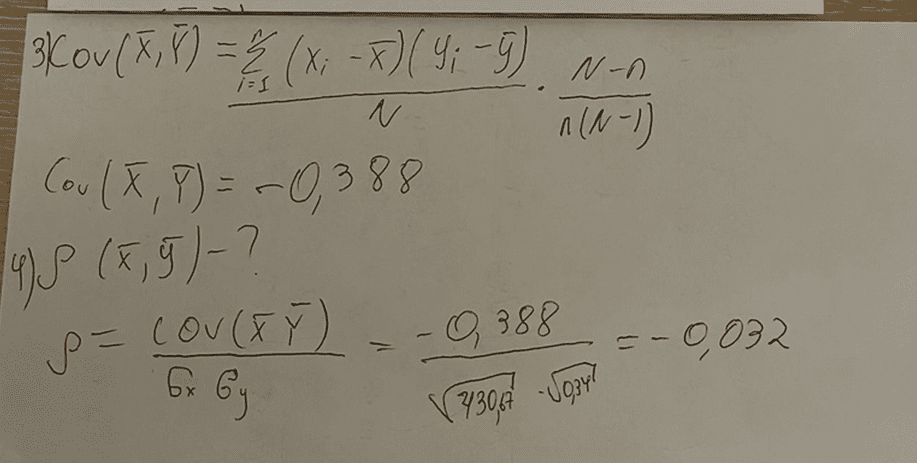 3) Cov(X̄, Ȳ) = n Σ i=1 (xᵢ - x̄)(yᵢ - ȳ) / N · N-n / n(N-1)
Cov(X̄, Ȳ) = -0,388
4) ρ (x̄, ȳ) - ?
ρ = cov(X̄ Ȳ) / σx σy = -0,388 / √430,67 · √0,34 = -0,032